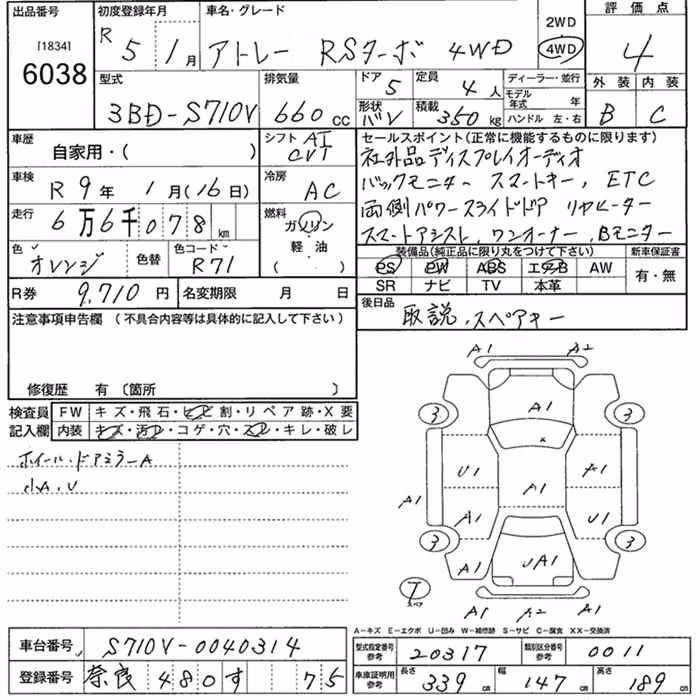 出品番号 [1834] 6038
初度登録年月 R 5年 1月
車名・グレード アトレー RSターボ 4WD
2WD 4WD
評価点 4
外装 内装
B C
型式 3BD-S710V
排気量 660 CC
ドア 5 定員 4人
形状 バン 積載 350 kg
ディーラー・並行
モデル年式 年
ハンドル 左・右
車歴 自家用・( )
シフト AT CVT
車検 R 9年 1月(16日)
冷房 AC
走行 6万6千078 km
燃料 ガソリン・軽・油 ( )
色 オレンジ 色替 色コード R71
R券 9,710円 名変期限 月 日
セールスポイント(正常に機能するものに限ります)
社外品ディスプレイオーディオ
バックモニター スマートキー, ETC
両側パワースライドドア リヤヒーター
スマートアシスト, ワンオーナー, Bモニター
装備品(純正品に限り丸をつけて下さい)
PS PW ABS エアB AW
SR ナビ TV 本革
新車保証書 有・無
後日品 取説、スペアキー
注意事項申告欄 (不具合内容等は具体的に記入して下さい)
修復歴 有 〔箇所 〕
検査員記入欄
FW キズ・飛石・ヒビ割・リペア跡・X要
内装 キズ・汚レ・コゲ・穴・スレ・キレ・破レ
ホイール・ドアミラーA
小A.U
A1 A2
3 A1 3
U1 A1
A1 A1 A1 U1
3 3
A1 UA1 A1
T スペア
A1 A2 A1
A-キズ E-エクボ U-凹み W-補修跡 S-サビ C-腐食 XX-交換済
車台番号 S710V-0040314
登録番号 奈良 480 す 75
型式指定番号 参考 20317
類別区分番号 参考 0011
車庫証明用 参考 長さ 339 cm 幅 147 cm 高さ 189 cm